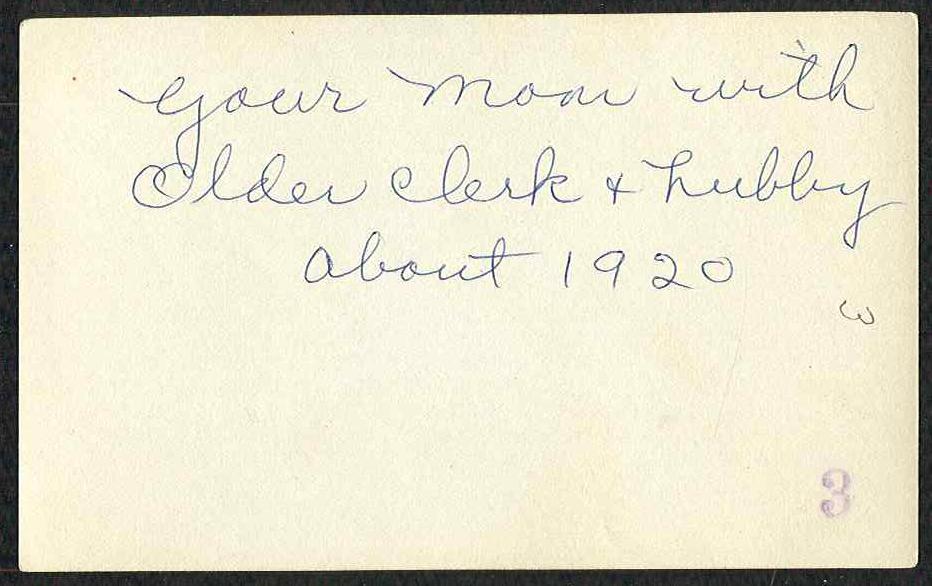 your Mom with
Older Clerk + hubby
about 1920
3
3